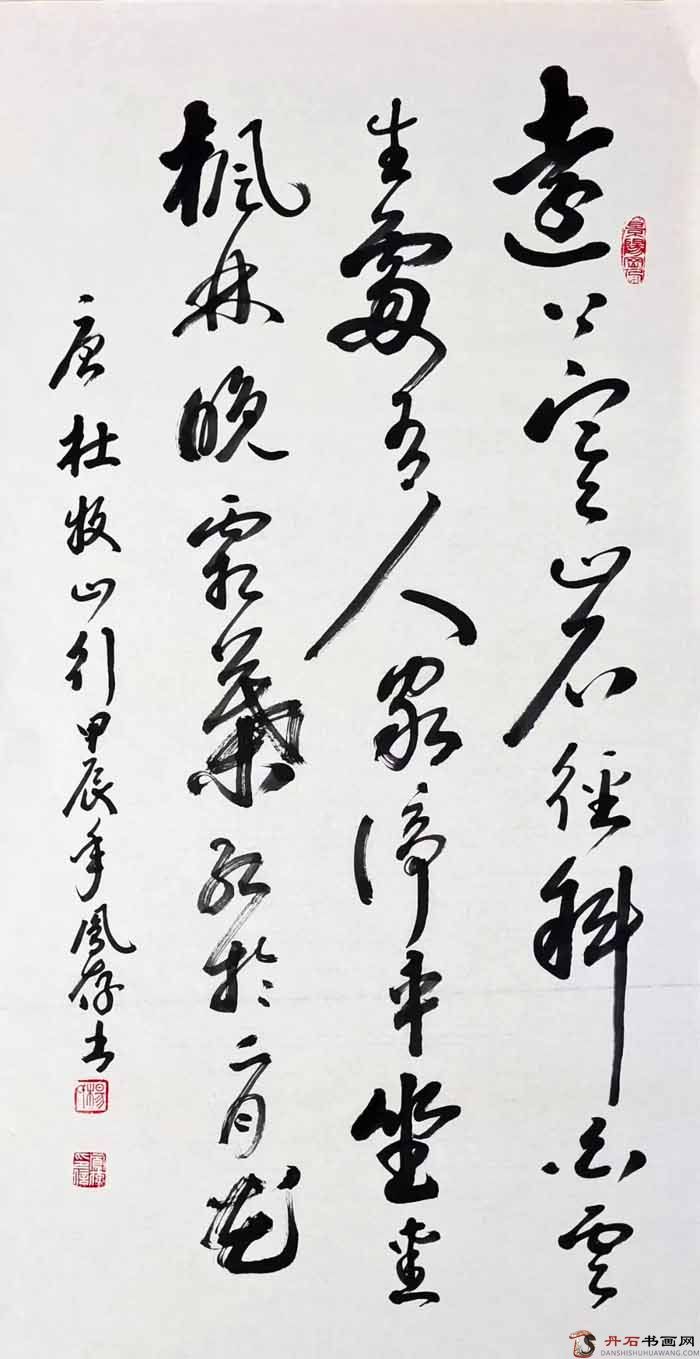 遠上寒山石徑斜白雲
生處有人家停車坐愛
楓林晚霜葉紅於二月花
唐杜牧山行甲辰年鳳存书
丹石书画网
DANSHISHUHUAWANG.COM